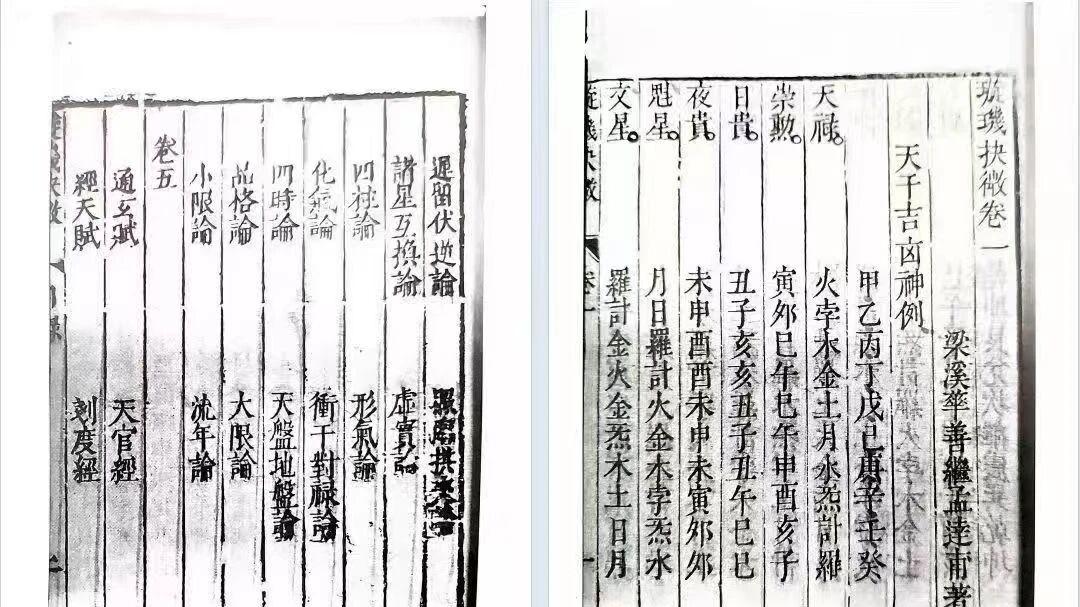 遲留伏逆論 照臨拱夾論
諸星互換論 虛實論
四柱論 形氣論
化氣論 衝干對祿論
四時論 天盤地盤論
品格論 大限論
小限論 流年論
卷五
通玄賦 天官經
經天賦 刻度經
璇璣抉微 目錄
璇璣抉微卷一
梁溪華善繼孟達甫著
天干吉凶神例
甲乙丙丁戊己庚辛壬癸
天祿。 火孛木金土月水炁計羅
榮勲。 寅夘巳午巳午申酉亥子
日貴。 丑子亥亥丑子丑午巳巳
夜貴。 未申酉酉未申未寅夘夘
魁星。 月日羅計火金木孛炁水
文星。 羅計金火金炁木土日月
璇璣抉微 卷一